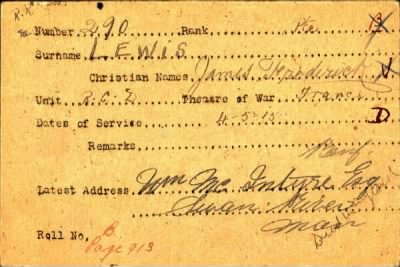 R.R.
Number 290 Rank Pte
Surname LEWIS
Christian Names James Frederick
Unit R.C.D Theatre of War France
Dates of Service 4-5-15 D
Remarks
Latest Address Wm Mc Intyre Esq
Swan River
Man
Roll No. B.
Page 913